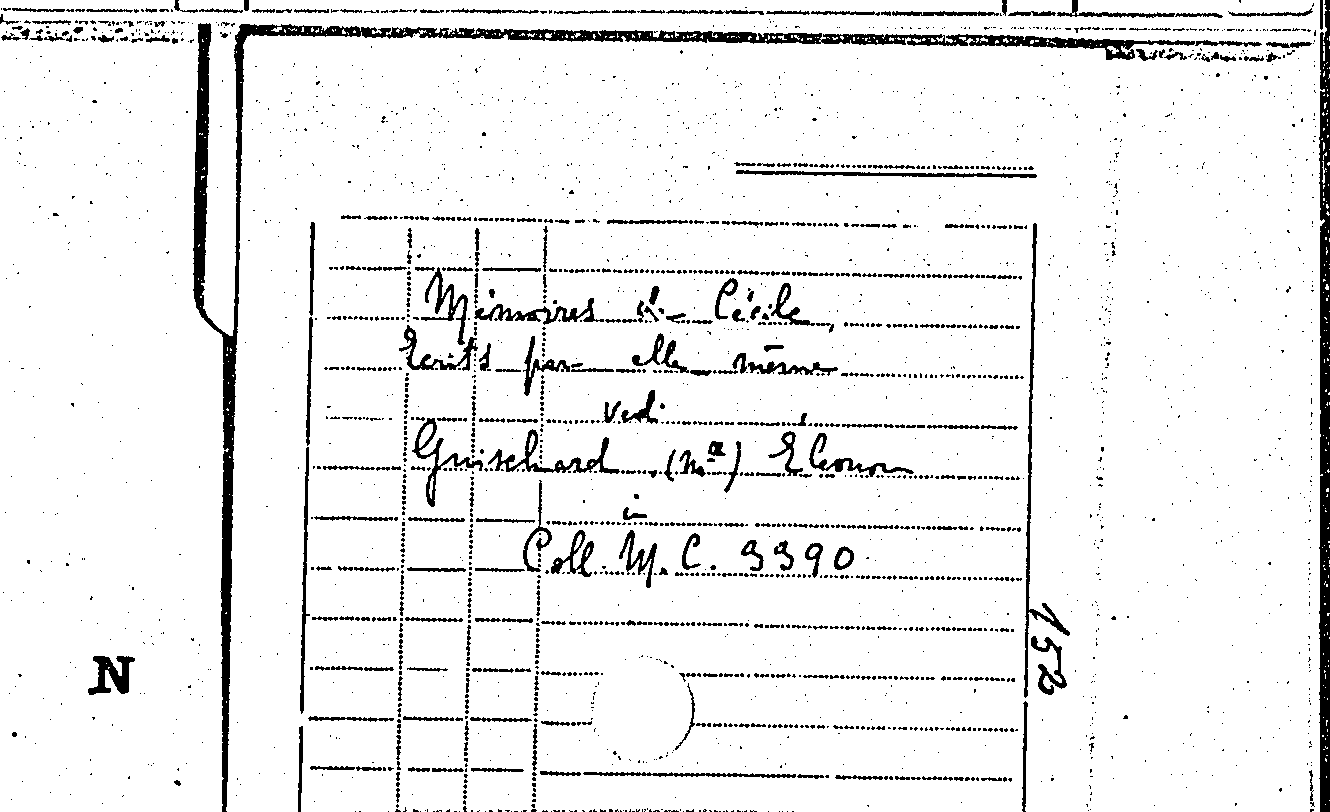 Mémoires de Cécile,
Écrits par elle même
vedi
Guischard (Ma) Éléonore
in
Coll. M. C. 3390
152
N